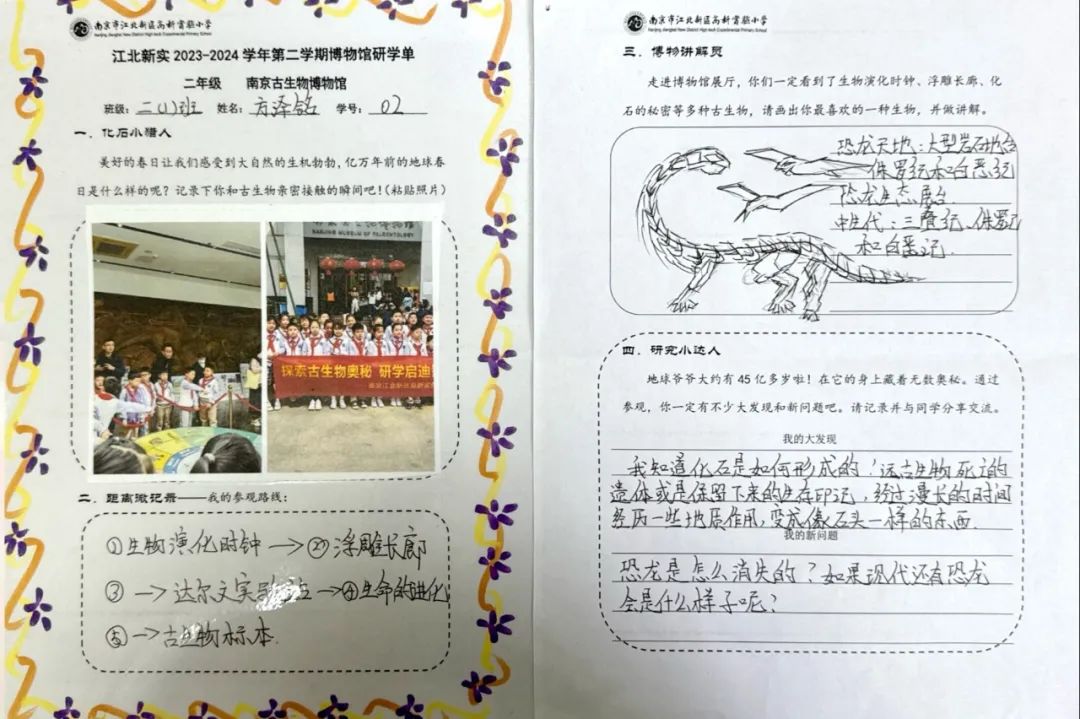 南京市江北新区高新实验小学
Nanjing Jiangbei New District High-tech Experimental Primary School
江北新实 2023-2024 学年第二学期博物馆研学单
二年级 南京古生物博物馆
班级：二(1)班 姓名：方泽铭 学号：02
一．化石小猎人
美好的春日让我们感受到大自然的生机勃勃，亿万年前的地球春
日是什么样的呢？记录下你和古生物亲密接触的瞬间吧！（粘贴照片）
NANJING MUSEUM OF PALEONTOLOGY
探索古生物奥秘 研学启迪
二．距离微记录——我的参观路线：
①生物演化时钟→②浮雕长廊
③→达尔文实验站→④生命的进化
⑤→古生物标本.
南京市江北新区高新实验小学
Nanjing Jiangbei New District High-tech Experimental Primary School
三．博物讲解员
走进博物馆展厅，你们一定看到了生物演化时钟、浮雕长廊、化
石的秘密等多种古生物，请画出你最喜欢的一种生物，并做讲解。
恐龙天地：大型岩石地台
侏罗纪和白垩纪
恐龙生态展台.
中生代：三叠纪、侏罗纪
和白垩纪.
四．研究小达人
地球爷爷大约有 45 亿多岁啦！在它的身上藏着无数奥秘。通过
参观，你一定有不少大发现和新问题吧。请记录并与同学分享交流。
我的大发现
我知道化石是如何形成的！远古生物死亡的
遗体或是保留下来的生存印记，经过漫长的时间
经历一些地质作用，变成像石头一样的东西.
我的新问题
恐龙是怎么消失的？如果现代还有恐龙
会是什么样子呢？